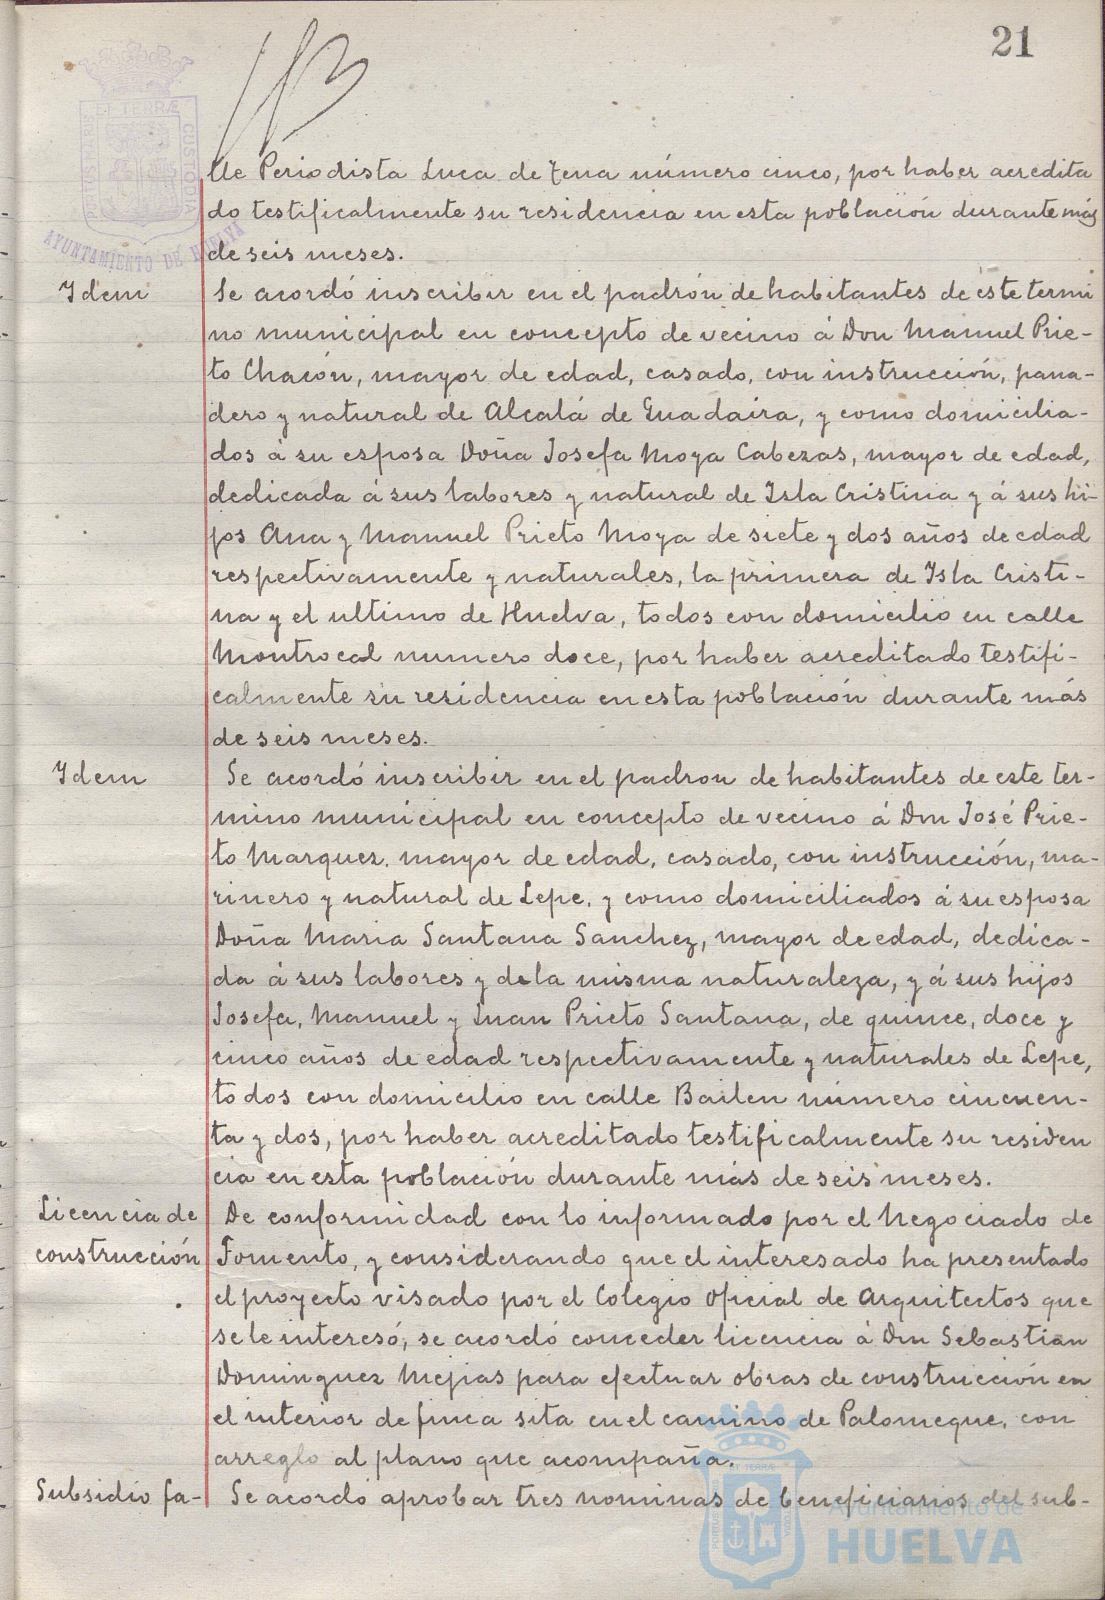 21
PORTUS MARIS ET TERRÆ CUSTODIA
AYUNTAMIENTO DE HUELVA
lle Periodista Luca de Tena número cinco, por haber acredita
do testificalmente su residencia en esta población durante más
de seis meses.
Ydem
Se acordó inscribir en el padrón de habitantes de este termi
no municipal en concepto de vecino á Don Manuel Prie-
to Chacón, mayor de edad, casado, con instrucción, pana-
dero y natural de Alcalá de Guadaira, y como domicilia-
dos á su esposa Doña Josefa Moya Cabezas, mayor de edad,
dedicada á sus labores y natural de Isla Cristina y á sus hi-
jos Ana y Manuel Prieto Moya de siete y dos años de edad
respectivamente y naturales, la primera de Isla Cristi-
na y el ultimo de Huelva, todos con domicilio en calle
Montrocal numero doce, por haber acreditado testifi-
calmente su residencia en esta población durante más
de seis meses.
Ydem
Se acordó inscribir en el padron de habitantes de este ter-
mino municipal en concepto de vecino á Don José Prie-
to Marquez, mayor de edad, casado, con instrucción, ma-
rinero y natural de Lepe, y como domiciliados á su esposa
Doña Maria Santana Sanchez, mayor de edad, dedica-
da á sus labores y de la misma naturaleza, y á sus hijos
Josefa, Manuel y Juan Prieto Santana, de quince, doce y
cinco años de edad respectivamente y naturales de Lepe,
todos con domicilio en calle Bailen número cincuen-
ta y dos, por haber acreditado testificalmente su residen
cia en esta población durante más de seis meses.
Licencia de
construcción
De conformidad con lo informado por el Negociado de
Fomento, y considerando que el interesado ha presentado
el proyecto visado por el Colegio Oficial de Arquitectos que
se le interesó, se acordó conceder licencia á Don Sebastian
Dominguez Mejias para efectuar obras de construcción en
el interior de finca sita en el camino de Palomeque, con
arreglo al plano que acompaña.
Subsidio fa-
Se acordó aprobar tres nominas de beneficiarios del sub-
Ayuntamiento de
HUELVA